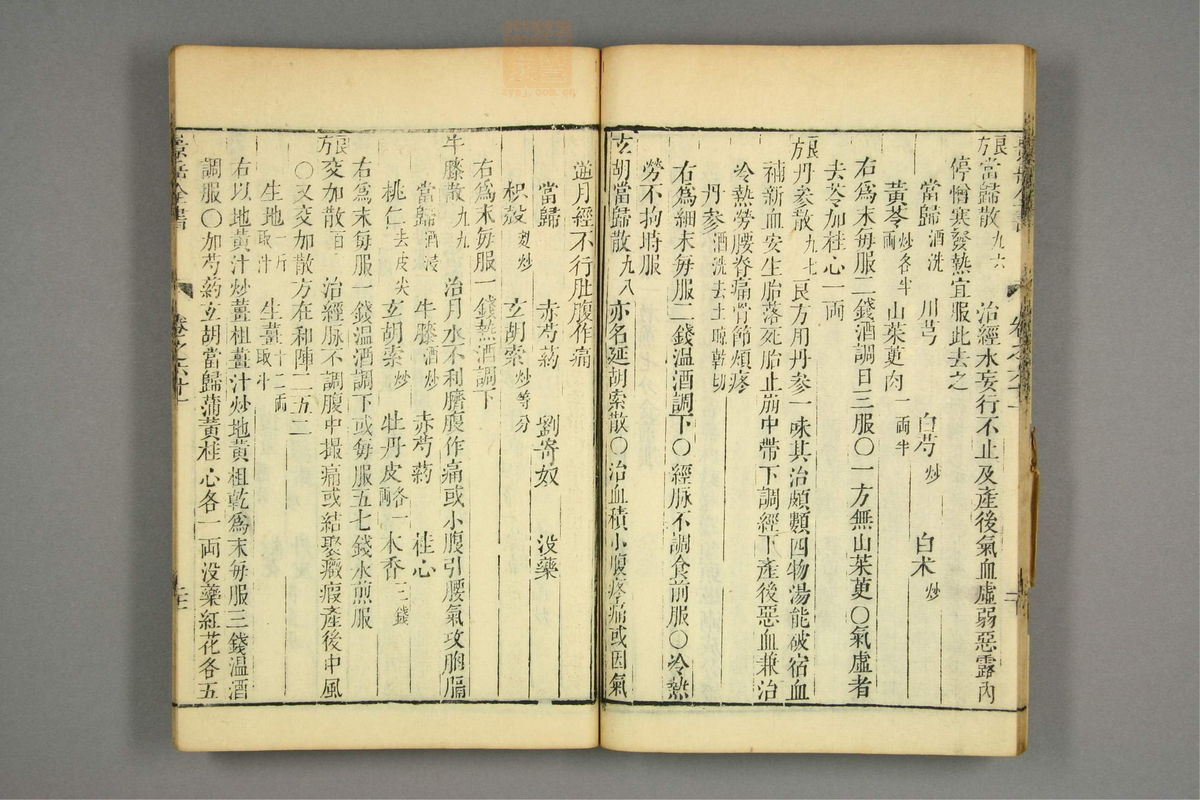 良方當歸散九六 治經水妄行不止及產後氣血虛弱惡露內
停憎寒發熱宜服此去之
當歸酒洗 川芎 白芍炒 白术炒
黃芩炒各半兩 山茱萸肉一兩半
右為細末每服二錢酒調日三服〇一方無山茱萸〇氣虛者
去芩加桂心一兩
良方丹參散九七 良方用丹參一味其治頗類四物湯能破宿血
補新血安生胎落死胎止崩中帶下調經下產後惡血兼治
冷熱勞腰脊痛骨節煩疼
丹參酒洗去土晒乾切
右為細末每服二錢温酒調下〇經脉不調食前服〇冷熱
勞不拘時服
玄胡當歸散九八 亦名延胡索散〇治血積小腹疼痛或因氣
逆月經不行肚腹作痛
當歸 赤芍藥 劉寄奴 没藥
枳殼麸炒 玄胡索炒等分
右為末每服一錢熱酒調下
牛膝散九九 治月水不利臍腹作痛或小腹引腰氣攻胸膈
當歸酒浸 牛膝酒炒 赤芍藥 桂心
桃仁去皮尖 玄胡索炒 牡丹皮各一兩 木香三錢
右為末每服一錢温酒調下或每服五七錢水煎服
良方交加散百 治經脉不調腹中撮痛或結聚癥瘕產後中風
〇又交加散方在和陣二五二
生地一斤取汁 生薑十二兩取汁
右以地黃汁炒薑柤薑汁炒地黃柤乾為末每服三錢温酒
調服〇加芍藥玄胡當歸蒲黃桂心各一兩没藥紅花各五